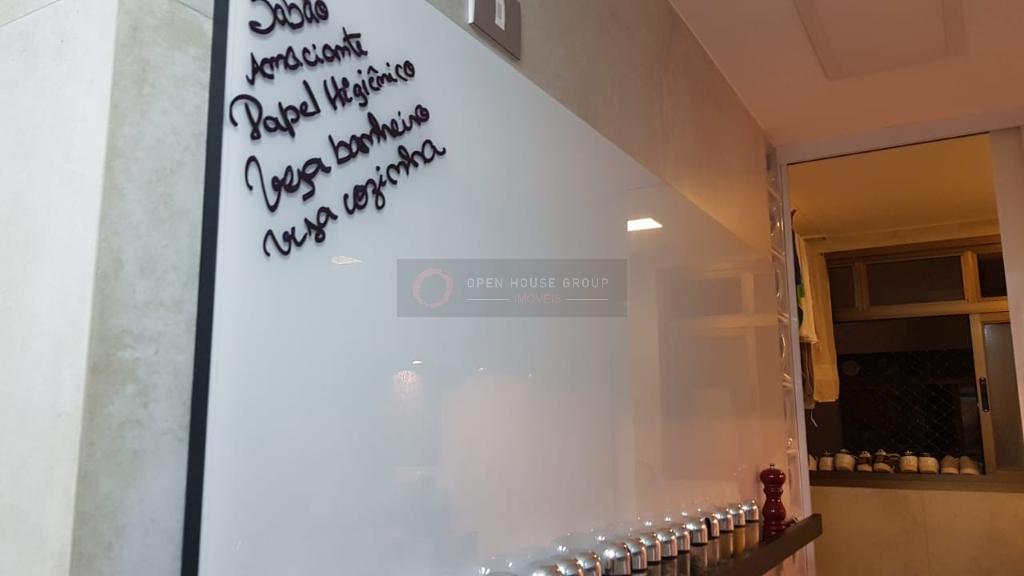 Sabão
Amaciante
Papel Higiênico
Veja banheiro
veja cozinha
OPEN HOUSE GROUP
IMÓVEIS